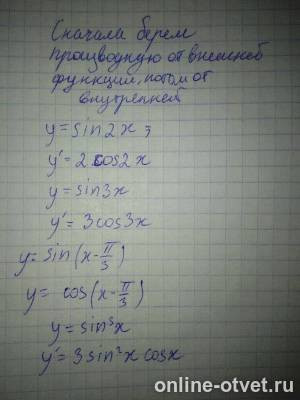 Сначала берем
производную от внешней
функции, потом от
внутренней
y = sin2x ;
y' = 2cos2x
y = sin3x
y' = 3cos3x
y = sin(x - π/3)
y = cos(x - π/3)
y = sin³x
y' = 3sin²x cosx
online-otvet.ru